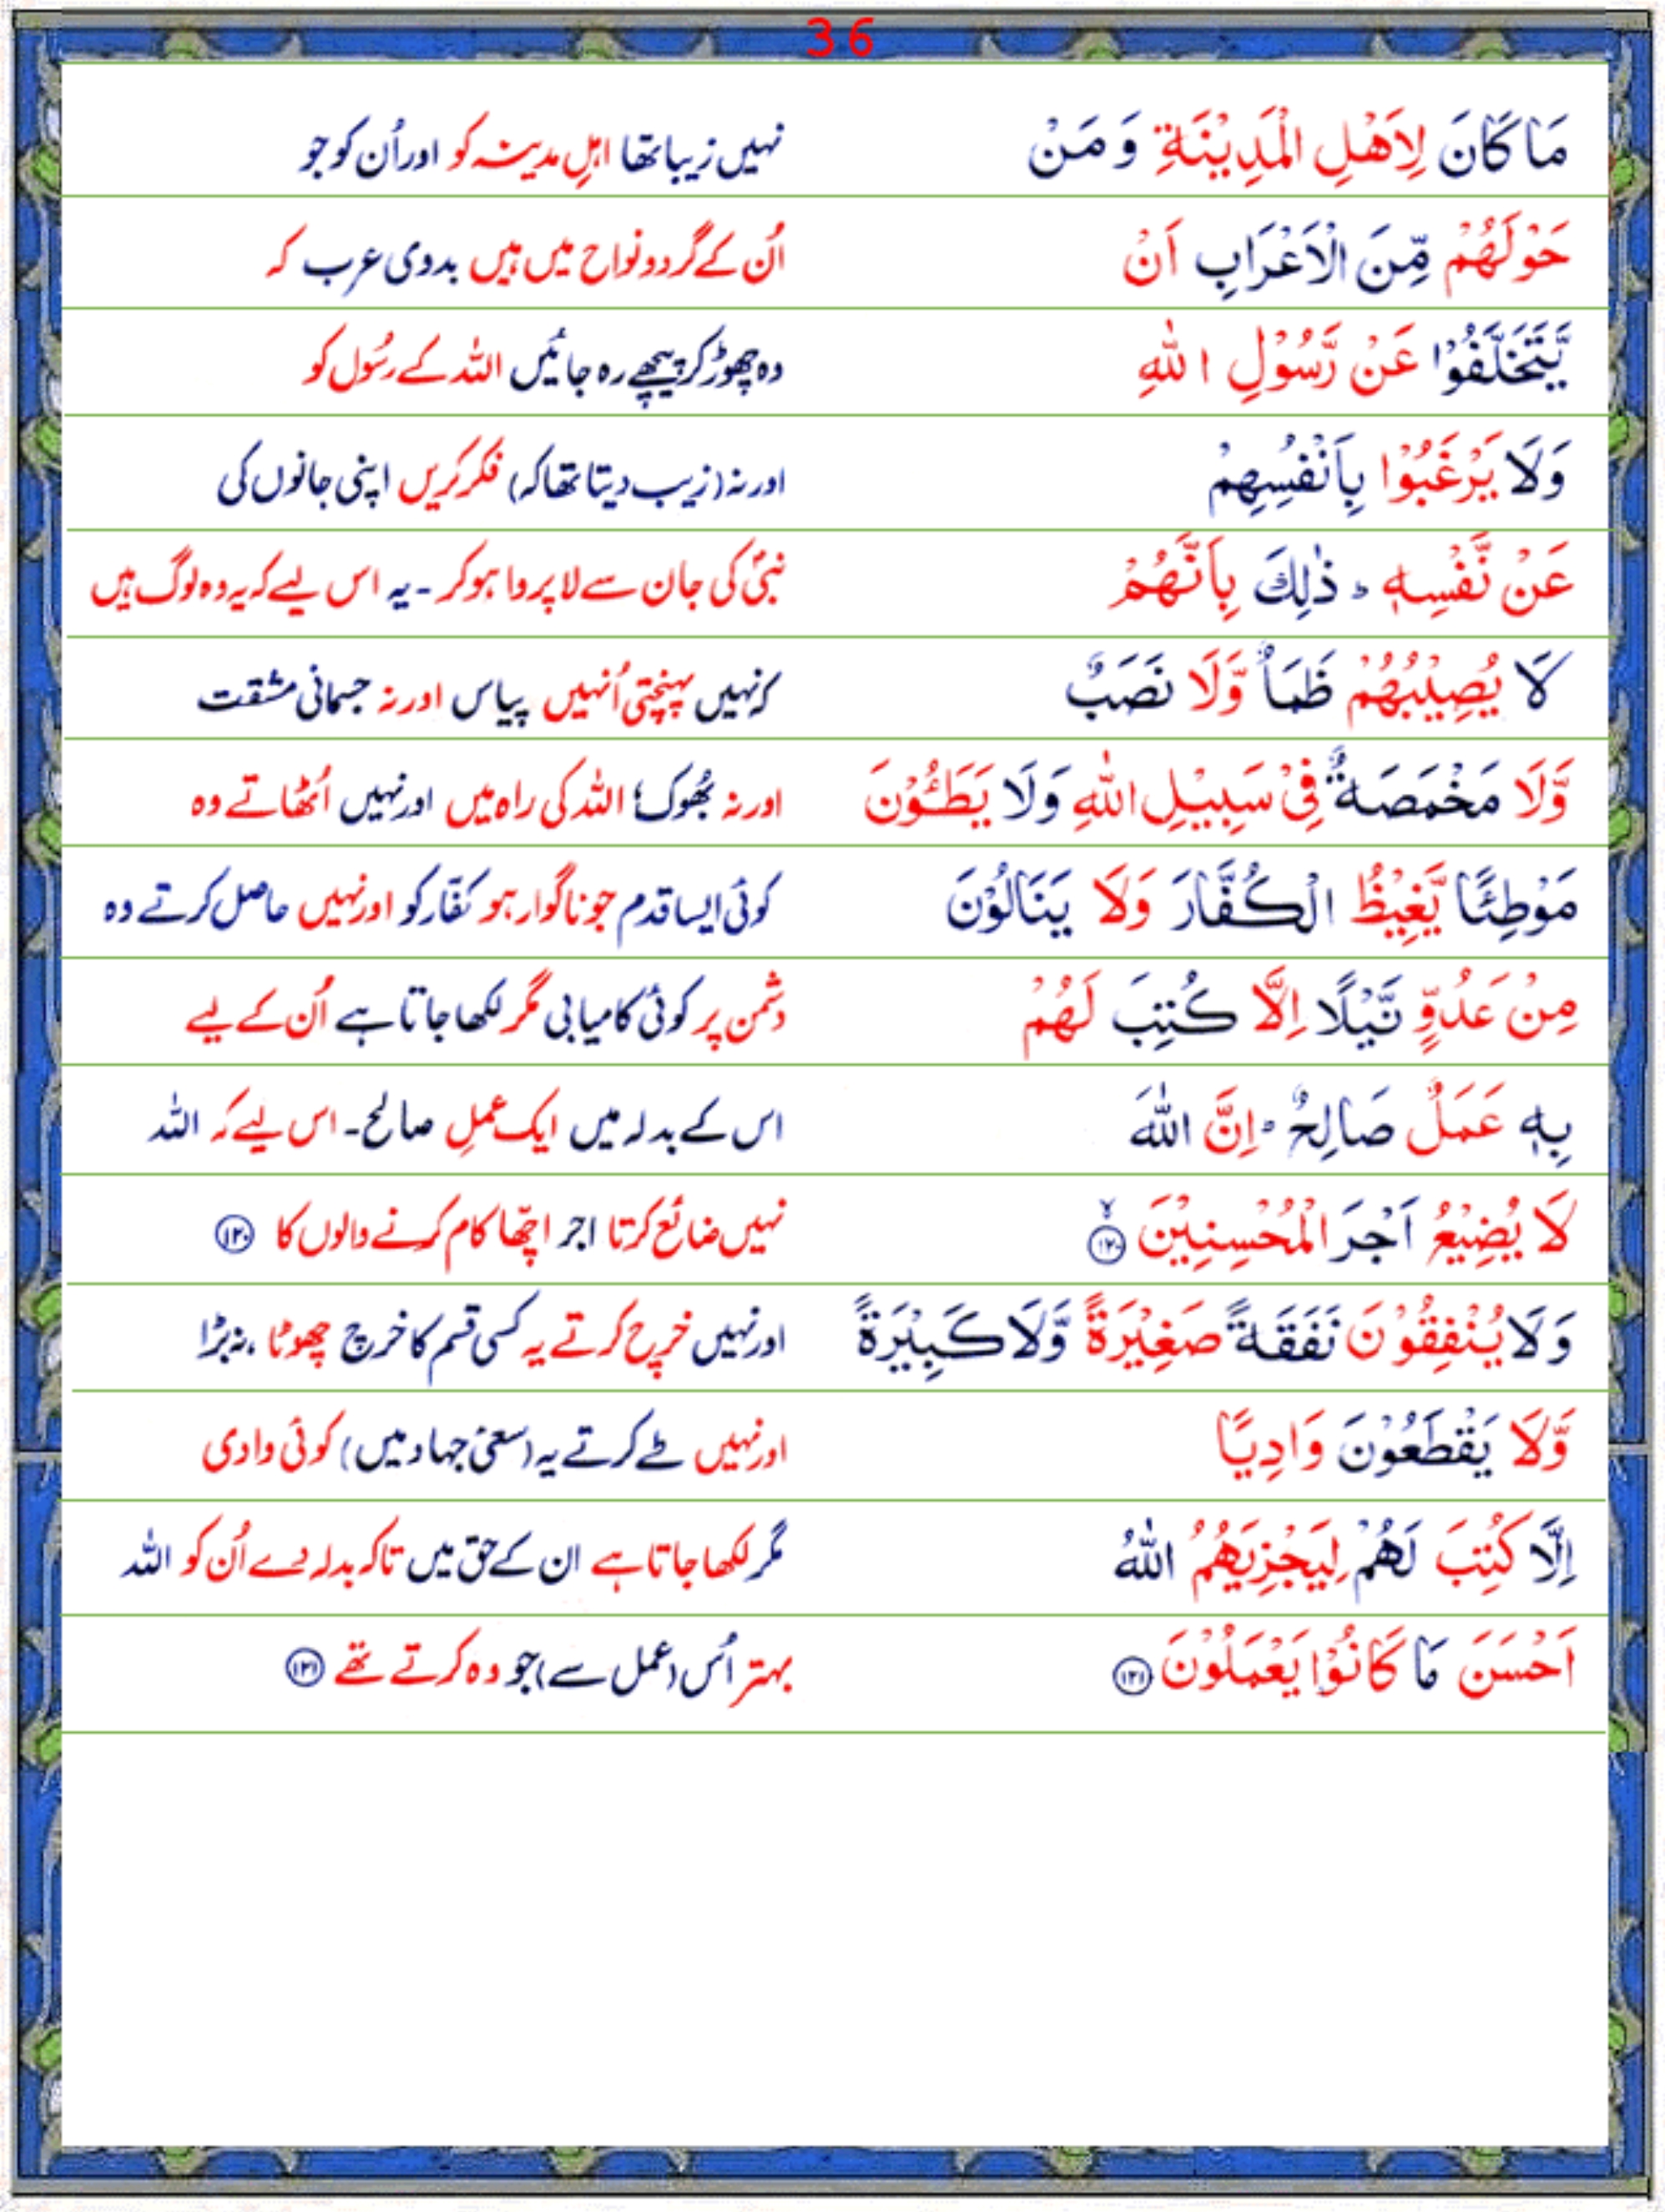 36
مَا كَانَ لِاَهْلِ الْمَدِيْنَةِ وَ مَنْ نہیں زیبا تھا اہلِ مدینہ کو اور اُن کو جو
حَوْلَهُمْ مِّنَ الْاَعْرَابِ اَنْ اُن کے گردونواح میں ہیں بدوی عرب کہ
يَّتَخَلَّفُوْا عَنْ رَّسُوْلِ اللّٰهِ وہ چھوڑ کر پیچھے رہ جائیں اللہ کے رسُول کو
وَلَا يَرْغَبُوْا بِاَنْفُسِهِمْ اور نہ (زیب دیتا تھا کہ) فکر کریں اپنی جانوں کی
عَنْ نَّفْسِهٖ ؕ ذٰلِكَ بِاَنَّهُمْ نبیؐ کی جان سے لاپروا ہوکر ۔ یہ اس لیے کہ یہ وہ لوگ ہیں
لَا يُصِيْبُهُمْ ظَمَاٌ وَّلَا نَصَبٌ کہ نہیں پہنچتی اُنہیں پیاس اور نہ جسمانی مشقت
وَّلَا مَخْمَصَةٌ فِيْ سَبِيْلِ اللّٰهِ وَلَا يَطَـُٔوْنَ اور نہ بھُوک، اللہ کی راہ میں اور نہیں اُٹھاتے وہ
مَوْطِئًا يَّغِيْظُ الْكُفَّارَ وَلَا يَنَالُوْنَ کوئی ایسا قدم جو ناگوار ہو کفّار کو اور نہیں حاصل کرتے وہ
مِنْ عَدُوٍّ نَّيْلًا اِلَّا كُتِبَ لَهُمْ دشمن پر کوئی کامیابی مگر لکھا جاتا ہے اُن کے لیے
بِهٖ عَمَلٌ صَالِحٌ ؕ اِنَّ اللّٰهَ اس کے بدلہ میں ایک عملِ صالح۔ اس لیے کہ اللہ
لَا يُضِيْعُ اَجْرَ الْمُحْسِنِيْنَ ۙ ﴿۱۲۰﴾ نہیں ضائع کرتا اجر اچّھا کام کرنے والوں کا ﴿۱۲۰﴾
وَلَا يُنْفِقُوْنَ نَفَقَةً صَغِيْرَةً وَّلَا كَبِيْرَةً اور نہیں خرچ کرتے یہ کسی قسم کا خرچ چھوٹا ، نہ بڑا
وَّلَا يَقْطَعُوْنَ وَادِيًا اور نہیں طے کرتے یہ (سعئ جہاد میں) کوئی وادی
اِلَّا كُتِبَ لَهُمْ لِيَجْزِيَهُمُ اللّٰهُ مگر لکھا جاتا ہے ان کے حق میں تاکہ بدلہ دے اُن کو اللہ
اَحْسَنَ مَا كَانُوْا يَعْمَلُوْنَ ﴿۱۲۱﴾ بہتر اُس (عمل سے) جو وہ کرتے تھے ﴿۱۲۱﴾